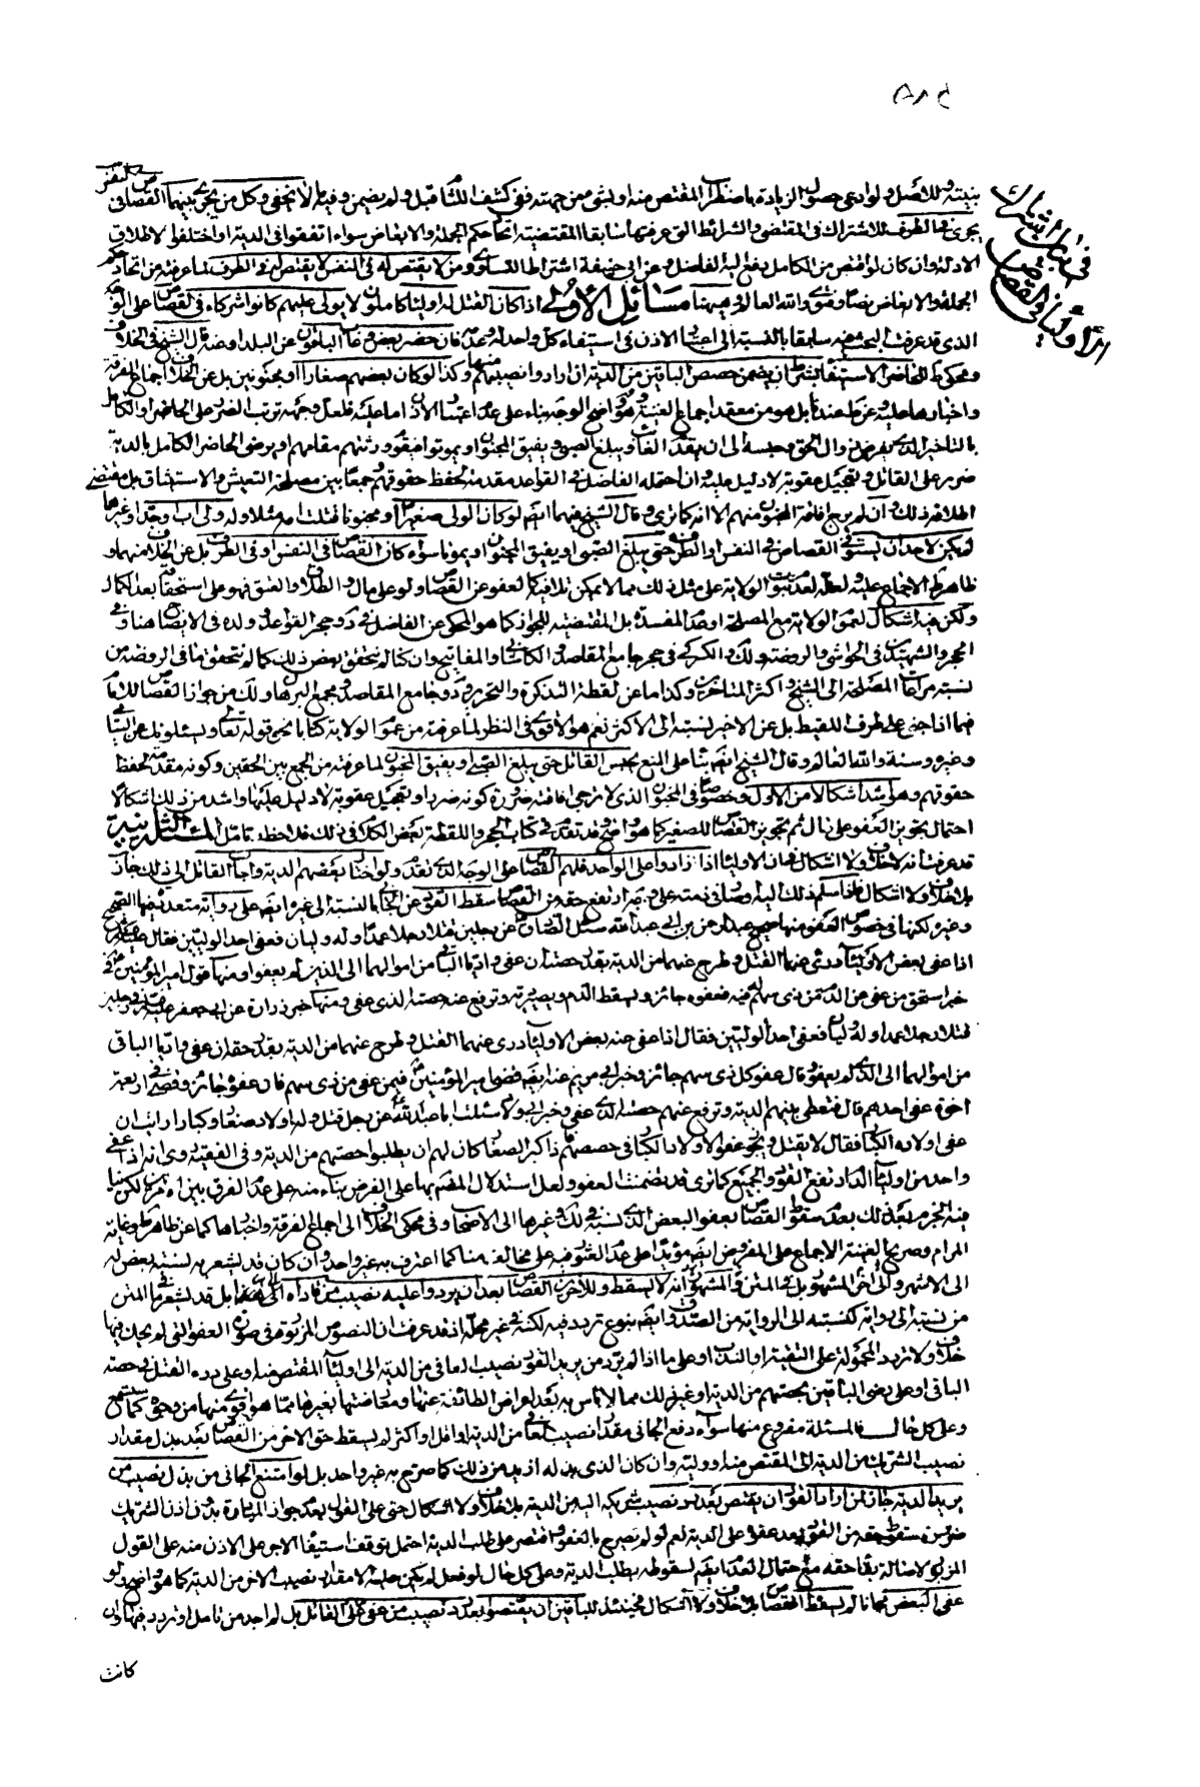 في بيان اشتراك
الأولياء في القصاص
بنيته وللأصل ولو ادعى حصول الزيادة باضطراب المقتص منه او بشي من جهته ففي كشف اللثام قبل ولم يضمن وفيه ما لا يخفى وكل من يجري بينهما القصاص في النفس
يجري في الطرف للاشتراك في المقتضي والشرائط التي عرفتها سابقا المقتضية اتحاد حكم الجملة والابعاض سواء اتفقوا في الدية او اختلفوا لاطلاق
الادلة وان كان لو اقتص من الكامل يدفع اليه الفاضل وعن ابي حنيفة اشتراط التساوي ومن لا يقتص له في النفس لا يقتص له في الطرف لما عرفته من اتحاد حكم
الجملة والابعاض نصا وفتوى والله العالم وهيهنا مسائل الأولى اذا كان للقتيل اولياء كاملون لا يولى عليهم كانوا شركاء في القصاص على الوجه
الذي قد عرفت البحث فيه سابقا بالنسبة الى اعتبار الاذن في استيفاء كل واحد له وعدمه فان حضر بعض وغاب الباقون عن البلد او فيه قال الشيخ في الخلاف
ومحكي ط للحاضر الاستيفاء بشرط ان يضمن حصص الباقين من الدية ان ارادوا نصيبهم وكذا لو كان بعضهم صغارا او مجنونين بل عن الخلاف اجماع الفرقة
واخبارها عليه وعن ط عندنا بل هو من معقد اجماع الغنية وهو واضح الوجه بناء على عدم اعتبار الاذن اما عليه فلعل وجهه ترتب الضرر على الحاضر او الكامل
بالتأخير الذي يفرض زوال الحق وحبسه الى ان يقدم الغائب ويبلغ الصبي ويفيق المجنون او يموتوا فيقوم ورثتهم مقامهم او يرضى الحاضر الكامل بالدية
ضرر على القاتل وتعجيل عقوبة لا دليل عليه وان احتمله الفاضل في القواعد مقدمة لحفظ حقوقهم وجمعا بين مصلحة التعيش والاستيثاق بل مقتضى
اطلاقه ذلك وان لم يرج افاقة المجنون منهم الا انه كما ترى وقال الشيخ فيهما ايضا لو كان الولي صغيرا او مجنونا قتلت امه مثلا وله ولي اب او جد او غيرهما
لم يكن لاحد ان يستوفي القصاص في النفس او الطرف حتى يبلغ الصبي او يفيق المجنون او يموتا سواء كان القصاص في النفس او في الطرف بل عن الخلاف منهما
ظاهر ط الاجماع عليه ولعله لعدم ثبوت الولاية على مثل ذلك مما لا يمكن تلافيه كالعفو عن القصاص ولو على مال والطلاق والعتق فهو على استحقاقه بعد الكمال
ولكن فيه اشكال لعموم الولاية مع المصلحة او عدم المفسدة بل المقتضية للجواز كما هو المحكي عن الفاضل في حجر القواعد وولده في الايضاح هنا وفي
الحجر والشهيدين في الحواشي والروضة ولك والكركي في حجر جامع المقاصد والكاشاني والمفاتيح وان كنا لم نتحقق بعض ذلك كما لم نتحقق ما في الروضة من
نسبة مراعاة المصلحة الى الشيخ واكثر المتأخرين وكذا ما عن لقطة التذكرة والتحرير وجامع المقاصد ومجمع البرهان ولك من جواز القصاص للامام
فيما اذا جني على طرف اللقيط بل عن الاخير نسبته الى الاكثر نعم هو الاقوى في النظر لما عرفته من عموم الولاية كتابا نحو قوله تعالى ويسئلونك عن اليتامى
وغيره وسنة والله العالم وقال الشيخ ايضا بناء على المنع يحبس القاتل حتى يبلغ الصبي او يفيق المجنون لما عرفته من الجمع بين الحقين وكونه مقدمة لحفظ
حقوقهم وهو اشد اشكالا من الاول وخصوصا في المجنون الذي لا ترجى افاقته ضرورة كونه ضررا وتعجيل عقوبة لا دليل عليهما واشد من ذلك اشكالا
احتمال تجويز العفو على مال ثم تجويز القصاص للصغير كما هو واضح وقد تقدم في كتاب الحجر واللقطة بعض الكلام في ذلك فلاحظ وتأمل المسئلة الثانية
قد عرفت انه لا خلاف ولا اشكال في ان الاولياء اذا زادوا على الواحد فلهم القصاص على الوجه الذي تقدم ولو اختار بعضهم الدية واجاب القاتل الى ذلك جاز
بلا خلاف ولا اشكال فاذا سلم ذلك اليه او صار في ذمته على وجه ارتفع حقه من القصاص سقط القود عن الجاني بالنسبة الى غيره ايضا على رواية متعددة فيها الصحيح
وغيره ولكنها في خصوص العفو منها صحيح عبد الرحمن بن ابي عبد الله سئل الصادق عن رجلين قتلا رجلا عمدا وله وليان فعفى احد الوليين فقال
اذا عفى بعض الاولياء درئ عنهما القتل وطرح عنهما من الدية بقدر حصة من عفى واديا الباقي من اموالهما الى الذين لم يعفوا ومنها قول امير المؤمنين في
خبر اسحق من عفى عن الدم من ذي سهم له فيه فعفوه جائز ويسقط الدم ويصير دية ويرفع عنه حصة الذي عفى ومنها خبر زرارة عن ابي جعفر في رجلين
قتلا رجلا عمدا وله وليان فعفى احد الوليين فقال اذا عفى عنه بعض الاولياء درئ عنهما القتل وطرح عنهما من الدية بقدر حصة من عفى واديا الباقي
من اموالهما الى الذي لم يعفو وقال عفو كل ذي سهم جائز وخبر ابي مريم عنه ايضا قضى امير المؤمنين فيمن عفى من ذي سهم فان عفوه جائز وقضى في اربعة
اخوة عفى احدهم قال فتعطى بقيتهم الدية وترفع عنهم حصة الذي عفى وخبر ابي ولاد سئلت ابا عبد الله عن رجل قتل وله اولاد صغار وكبار ارأيت ان
عفى اولاده الكبار فقال لا يقتل ويجوز عفو الاولاد الكبار في حصصهم فاذا كبر الصغار كان لهم ان يطلبوا حصتهم من الدية وفي الفقيه روى انه اذا عفى
واحد من اولياء الدم ارتفع القود والجميع كما ترى قد تضمنت العفو ولعل استدلال المصنف بها على الفرض بناء منه على عدم الفرق بين الامرين لكن
فيه الجزم بعد ذلك بعدم سقوط القصاص بعفو البعض الذي نسبه في لك وغيرها الى الاصحاب وفي محكي الخلاف الى اجماع الفرقة واخبارها كما عن ظاهر ط وغاية
المرام وصريح الغنية الاجماع على المفروض ايضا مؤيدا على عدم العثور فيه على مخالف هنا كما اعترف به غير واحد وان كان قد يشعر به نسبة بعض له
الى الاشهر واخر المشهور بل في المتن والمشهور انه لا يسقط وللآخرين القصاص بعد ان يردوا عليه نصيب من فاداه بل قد يشعر ما في المتن
من نسبته الى رواية كنسبته الى الرواية من الصدوق ايضا بنوع تردد فيه لكنه في غير محله اذ قد عرفت ان النصوص المزبورة في صورة العفو التي لم يحك فيها
خلاف ولا تردد المحمولة على التقية او الندب او على ما اذا لم يرد من يريد القود نصيب العافي من الدية الى اولياء المقتص منه او على رده القتل في حصة
الباقي او على رضى الباقين بحصتهم من الدية او غير ذلك مما لا بأس به بعد اعراض الطائفة عنها ومعارضتها بغيرها مما هو اقوى منها من وجوه كما ستسمع
وعلى كل حال فالمسئلة مفروغ منها سواء دفع الجاني مقدار نصيب العافي من الدية او اقل او اكثر لم يسقط حق الاخر من القصاص بعد بذل مقدار
نصيب الشريك من الدية الى المقتص منه او وليه وان كان الذي بذل له ازيد من ذلك كما صرح به غير واحد بل لو امتنع الجاني من بذل نصيب من
يريد الدية جاز لمن اراد القود ان يقتص بعد رد نصيب شريكه اليه من الدية بلا خلاف ولا اشكال حتى على القول بعدم جواز المبادرة بدون اذن الشريك
ضرورة سقوط حقه من القود بعد عفوه على الدية نعم لو لم يصرح بالعفو واقتصر على طلب الدية احتمل توقف استيفاء الاخر على الاذن منه على القول
المزبور لاصالة بقاء حقه مع احتمال العدم ايضا لسقوطه بطلب الدية وعلى كل حال لو فعل لم يكن عليه الا مقدار نصيب الاخر من الدية كما هو واضح ولو
عفى البعض مجانا لم يسقط القصاص بلا خلاف ولا اشكال فحينئذ للباقين ان يقتصوا بعد رد نصيب من عفى على القاتل بل لم اجد من تأمل او تردد فيه وان
كانت